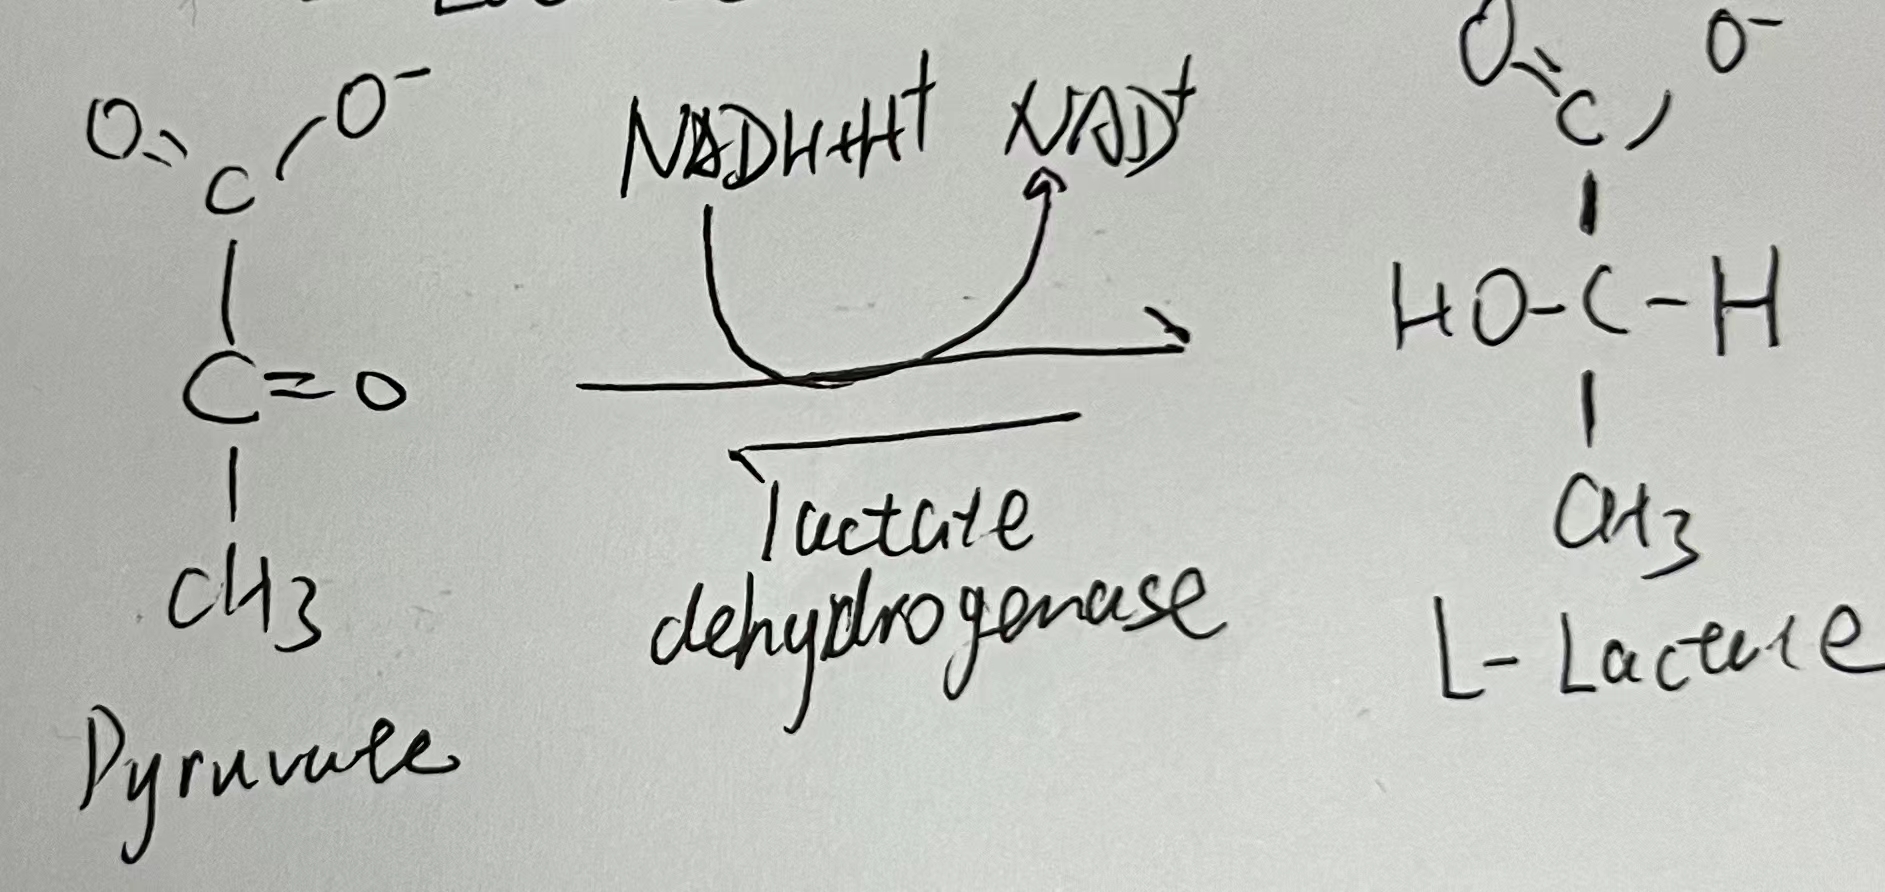 O O⁻
C
C=O
CH3
Pyruvate
NADH+H⁺ NAD⁺
lactate
dehydrogenase
O O⁻
C
HO-C-H
CH3
L-Lactate